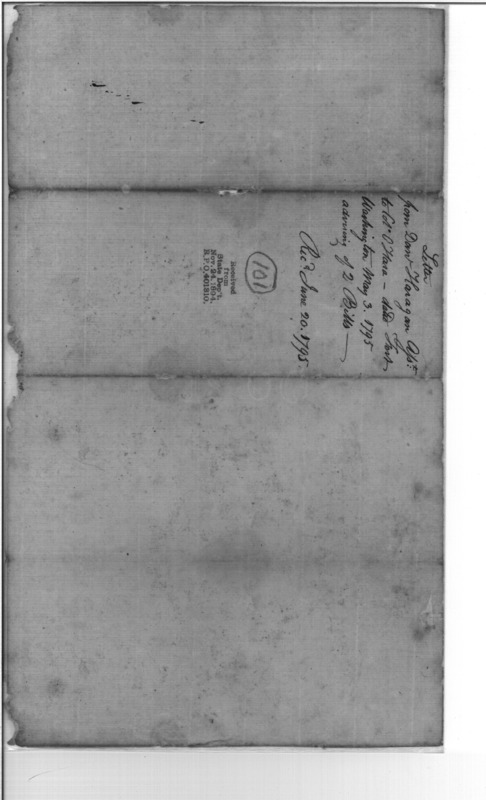 Letter
from Dan Haragan Asst.
to Col. O'Hara — dated Fort
Washington May 3. 1795
advising of 2 Bills —
Recd June 20. 1795.
101
Received
from
State Dep't.
Nov. 24, 1894.
R.P.O. 401810.